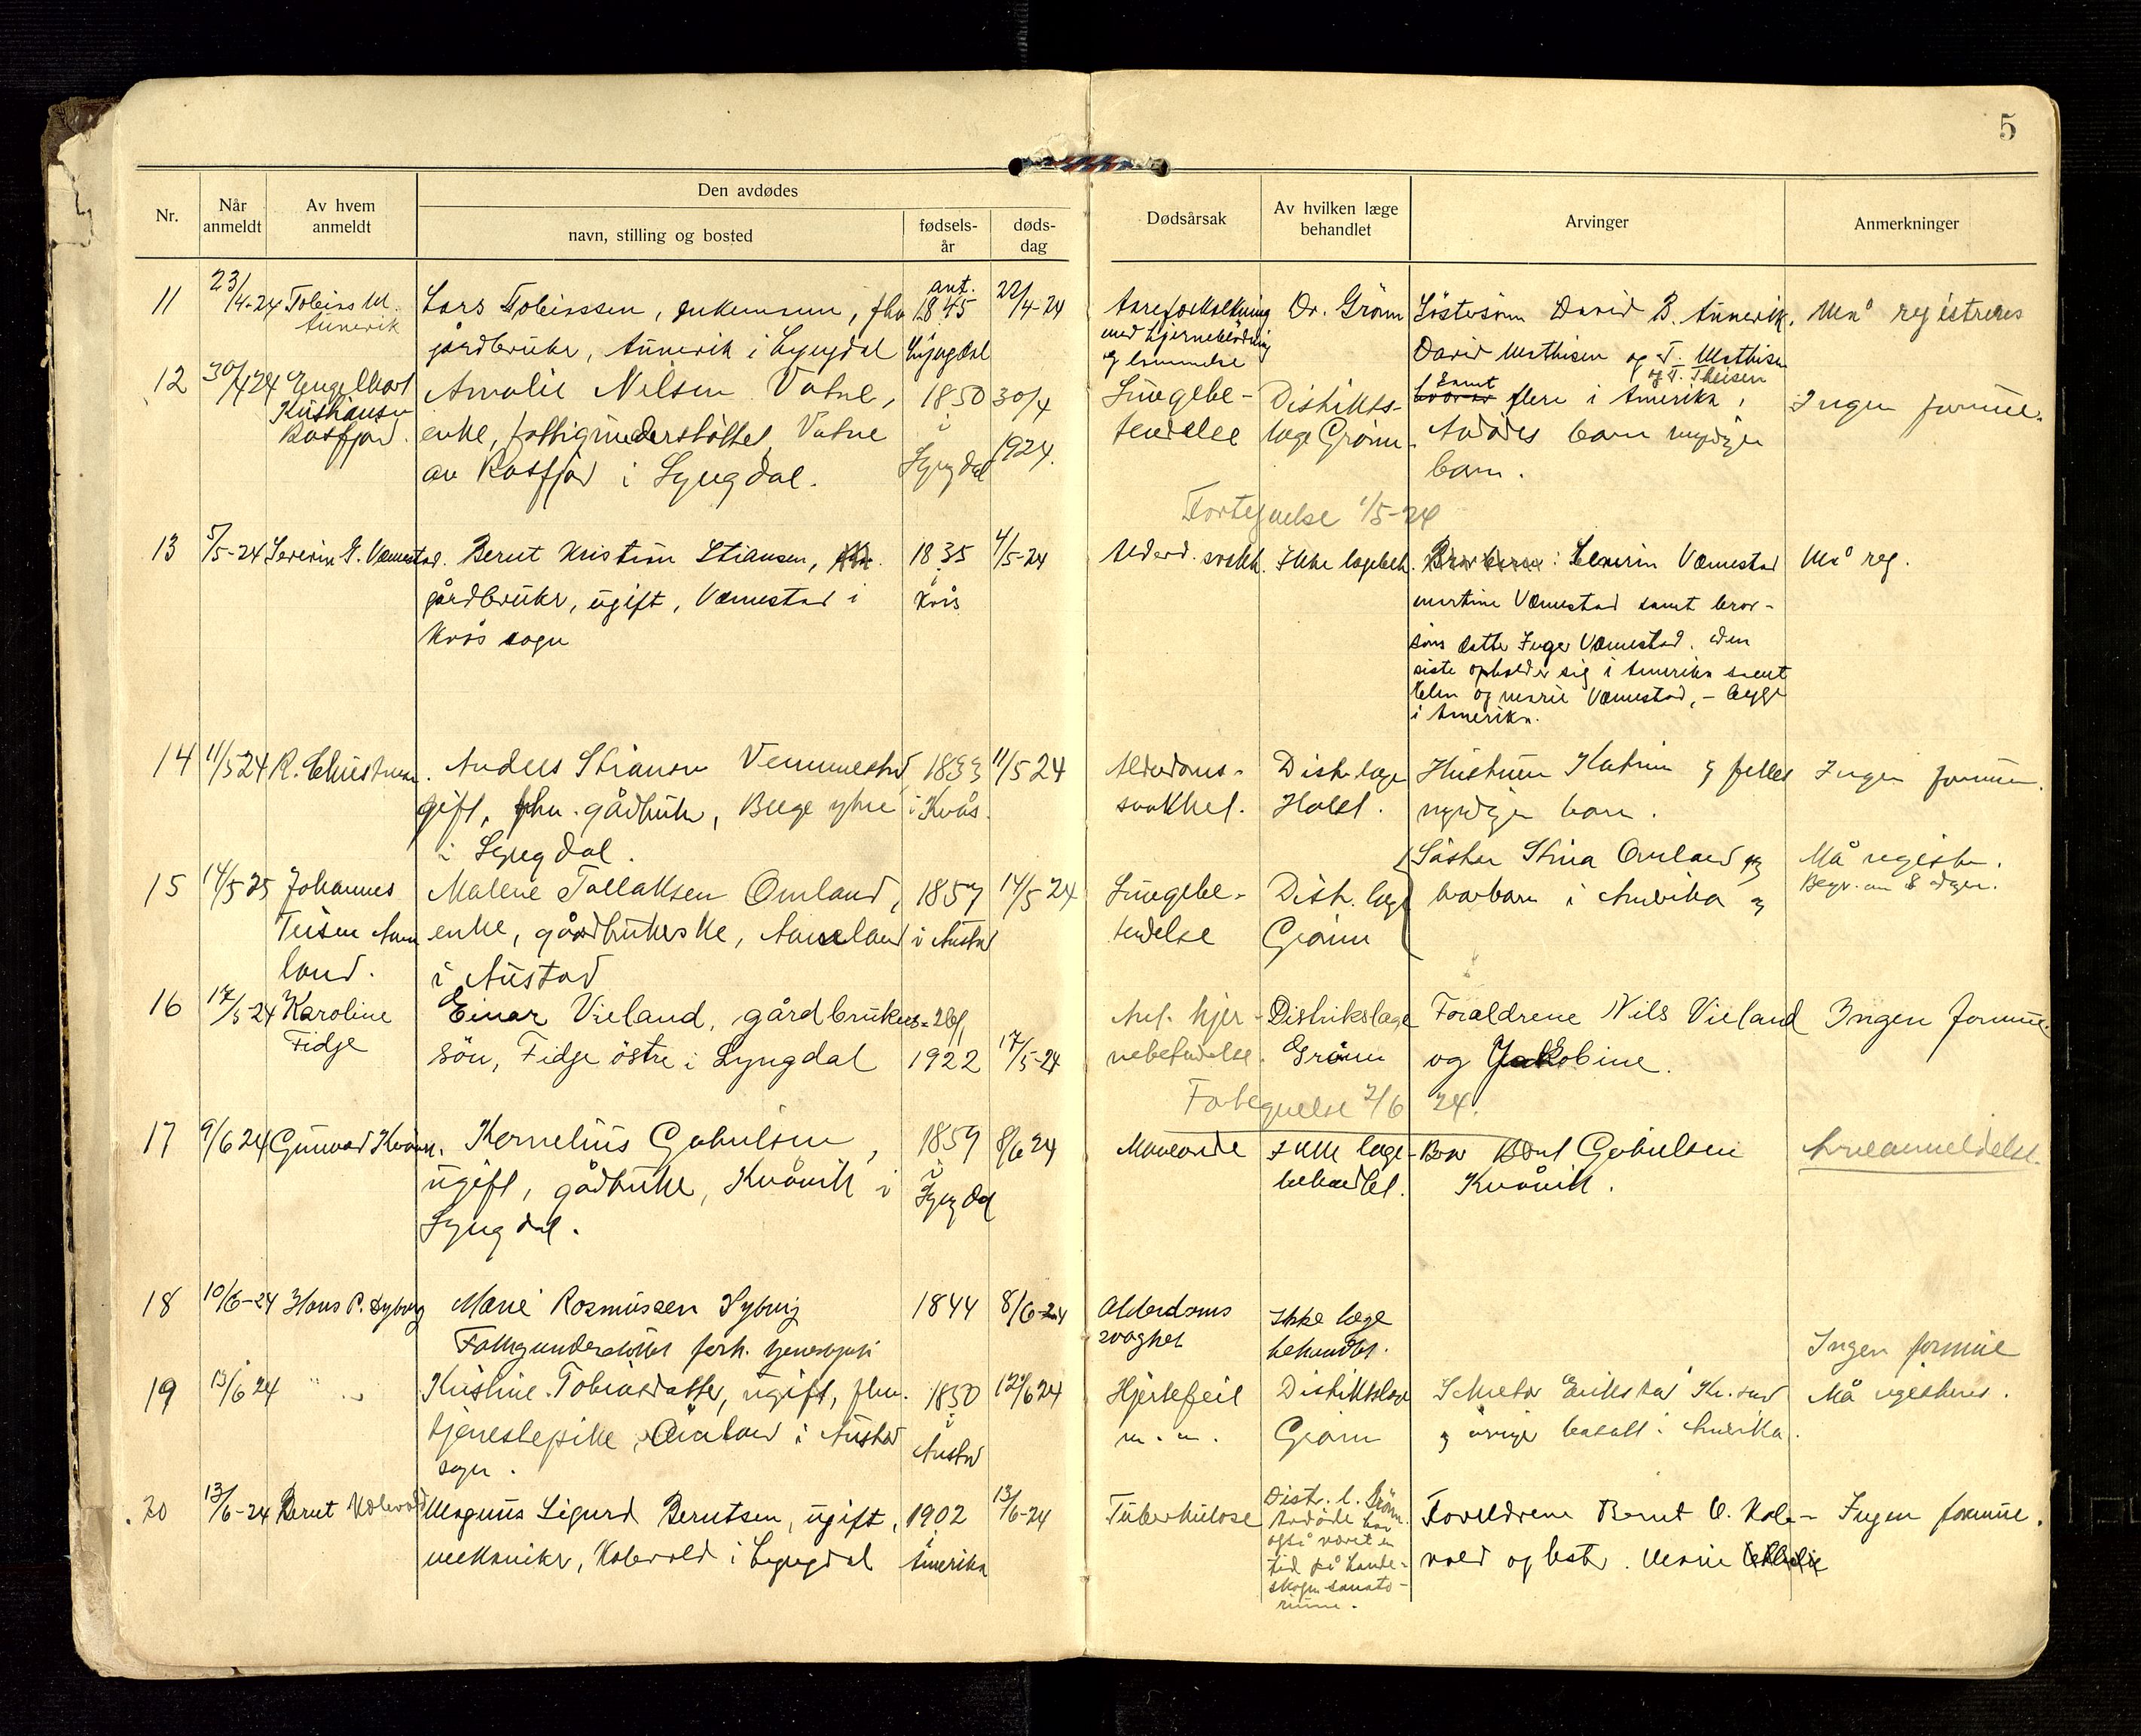 5
Den avdødes
Nr.
Når anmeldt
Av hvem anmeldt
navn, stilling og bosted
fødsels-år
døds-dag
Dødsårsak
Av hvilken læge behandlet
Arvinger
Anmerkninger
11 23/4-24 Tobias M. Aunevik
Lars Tobiassen, enkemann, fhv
gårdbruker, Aunevik i Lyngdal
ant. 1845 i Lyngdal
22/4-24
Åreforkalkning
med hjerneblødning
og lammelse
Dr. Grönn
Søstersönn David B. Aunevik,
David Mathisen og T. Mathisen
og T. Theisen
samt flere i Amerika,
Må registreres
12 30/4 24 Engelbart
Kristiansen
Rosfjord.
Amalie Nilsen Vatne,
enke, fattigunderstöttet, Vatne
av Rosfjord i Lyngdal.
1850 i Lyngdal
30/4 1924.
Lungebe-
tendelse
Distrikts-
læge Grönn
Avdödes barn myndige
barn.
Ingen formue.
Fortegnelse 1/5-24
13 5/5-24 Severin G. Væmestad.
Bernt Kristian Stiansen,
gårdbruker, ugift, Væmestad i
Kvås sogn
1835 i Kvås
4/5-24
Alderd. svakh.
Ikke lægebeh.
Severin Væmestad
Martine Væmestad samt bror-
söns datter Inger Væmestad. den
siste opholder sig i Amerika samt
Elen og Marie Væmestad, - begge
i Amerika.
Må reg.
14 11/5 24 R. Christensen.
Anders Stiansen Vemmestad,
gift, fhv. gårdbruker, Berge ytre
i Lyngdal.
1833 i Kvås.
11/5 24
Alderdoms-
svakhet.
Distr. læge
Holst.
Hustruen Katrine og felles
myndige barn.
Ingen formue.
15 14/5 25 Johannes
Teisen Aam
land.
Malene Tallaksen Omland,
enke, gårdbrukerske, Aamland
i Austad
1857 i Austad
14/5 24
Lungebe-
tendelse
Distr. læge
Grönn
Söster Stina Omland og
brorbarn i Amerika og
Må registr.
Begr. om 8 dager.
16 17/5-24 Karoline
Fidje
Einar Vieland, gårdbrukers-
sön, Fidje östre i Lyngdal
1922
17/5-24
hjer-
nebetendelse.
Distrikslæge
Grönn
Foraldrene Nils Vieland
og Jakobine.
Ingen formue.
Fortegnelse 2/6 24.
17 9/6 24 Gunvald Kvåvik.
Kornelius Gabrielsen,
ugift, gårdbruker, Kvåvik i
Lyngdal.
1859 i Lyngdal
8/6 24
Maveonde
Ikke læge-
behandlet.
Bror Bernt Gabrielsen
Kvåvik.
Arveanmeldelse.
18 10/6-24 Hans P. Hyberg
Marie Rasmussen Hyberg
Fattigunderstöttet forh. tjenestepike
1844
8/6-24
Alderdoms
svaghet
Ikke læge
behandlet.
Ingen formue
19 13/6 24 " "
Kristine Tobiasdatter, ugift, fhv.
tjenestepike, i Austad
sogn.
1850 i Austad
12/6 24
Hjertefeil
m. m.
Distriktslæge
Grönn
Eriksstad Kr. sand
og övrige bosatt i Amerika.
Må registreres.
20 13/6-24 Bernt Kolevold
Magnus Sigurd Berntsen, ugift,
mekaniker, Kolevold i Lyngdal
1902 i Amerika
13/6-24
Tuberkulose
Distr. l. Grönn.
Avdöde har
også været en
tid på Lande-
skogen sanato-
rium.
Foreldrene Bernt O. Kole-
vold og hustr. Marie
Ingen formue.